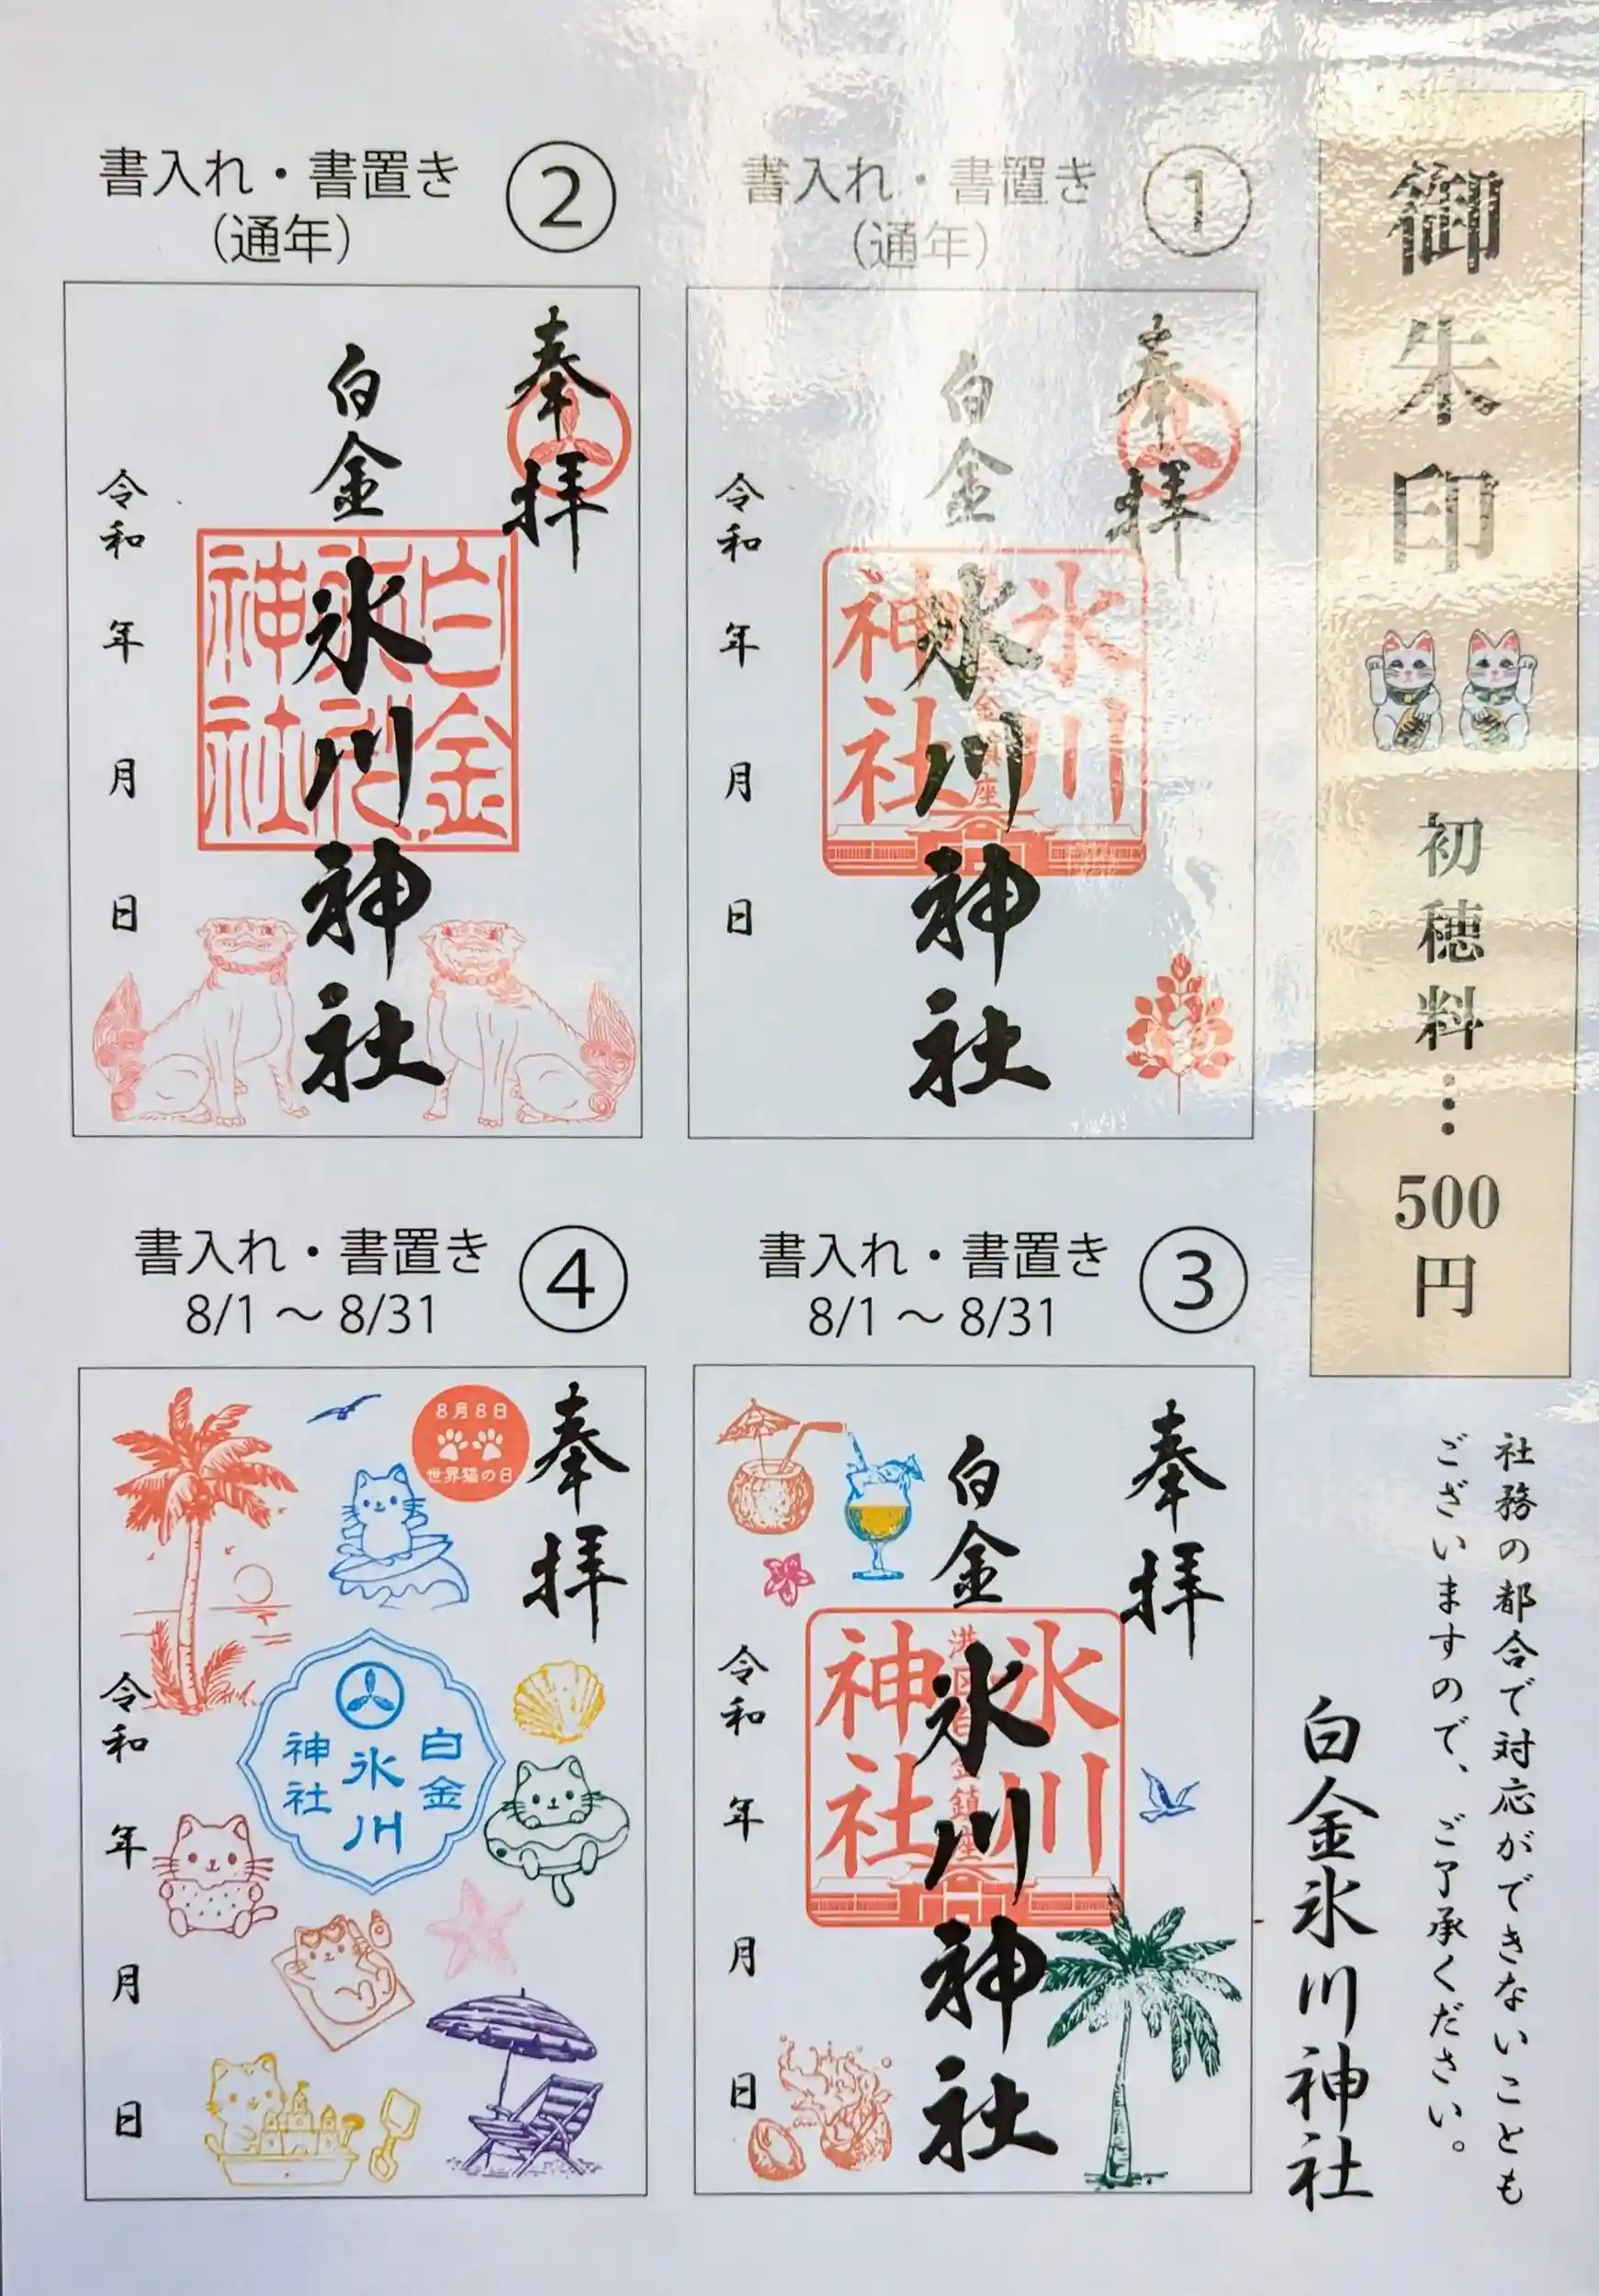 御朱印
初穂料…500円
①
書入れ・書置き
(通年)
奉拝
白金
氷川神社
氷川
神社
令和 年 月 日
②
書入れ・書置き
(通年)
奉拝
白金
氷川神社
白金
神社
令和 年 月 日
③
書入れ・書置き
8/1～8/31
奉拝
白金
氷川神社
氷川
神社
令和 年 月 日
④
書入れ・書置き
8/1～8/31
奉拝
8月8日
世界猫の日
白金
氷川
神社
令和 年 月 日
社務の都合で対応ができないことも
ございますので、ご了承ください。
白金氷川神社